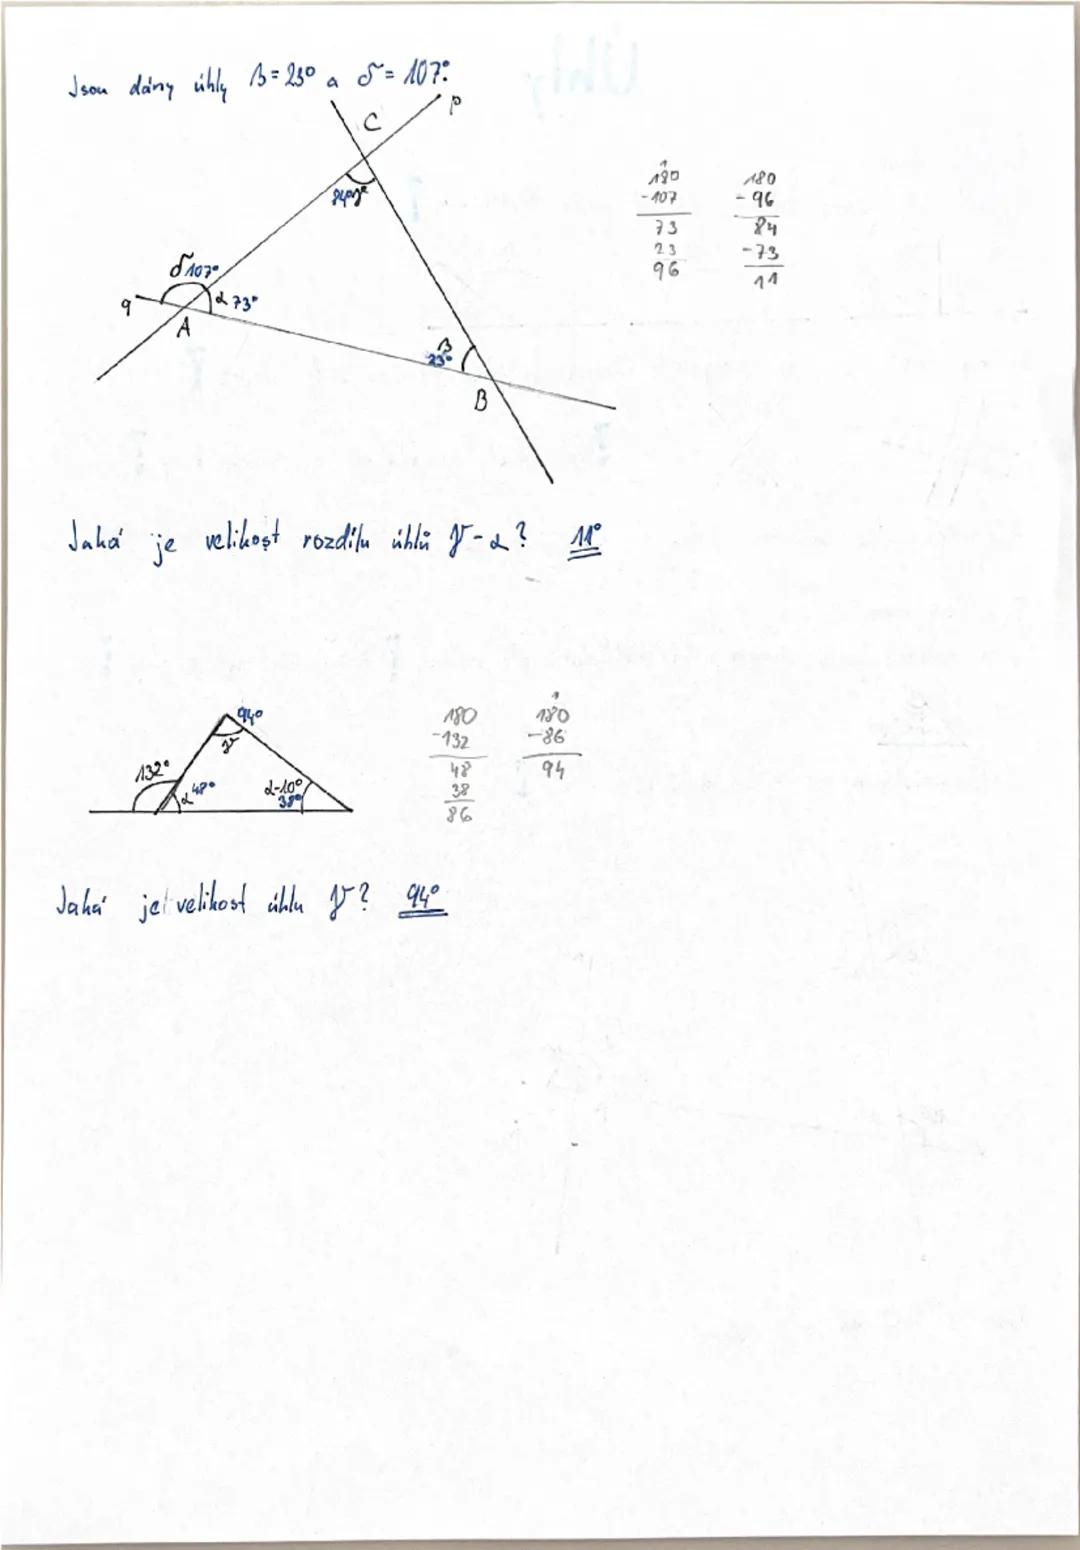 Jsou dány úhly β = 23° a δ = 107°.
C
p
84° γ
δ 107°
q
α 73°
A
β
23°
B
180
-107
73
23
96
180
- 96
84
-73
11
Jaká je velikost rozdílu úhlů γ - α ? 11°
94°
γ
132°
α 48°
α-10°
38°
180
-132
48
38
86
180
-86
94
Jaká je velikost úhlu γ ? 94°